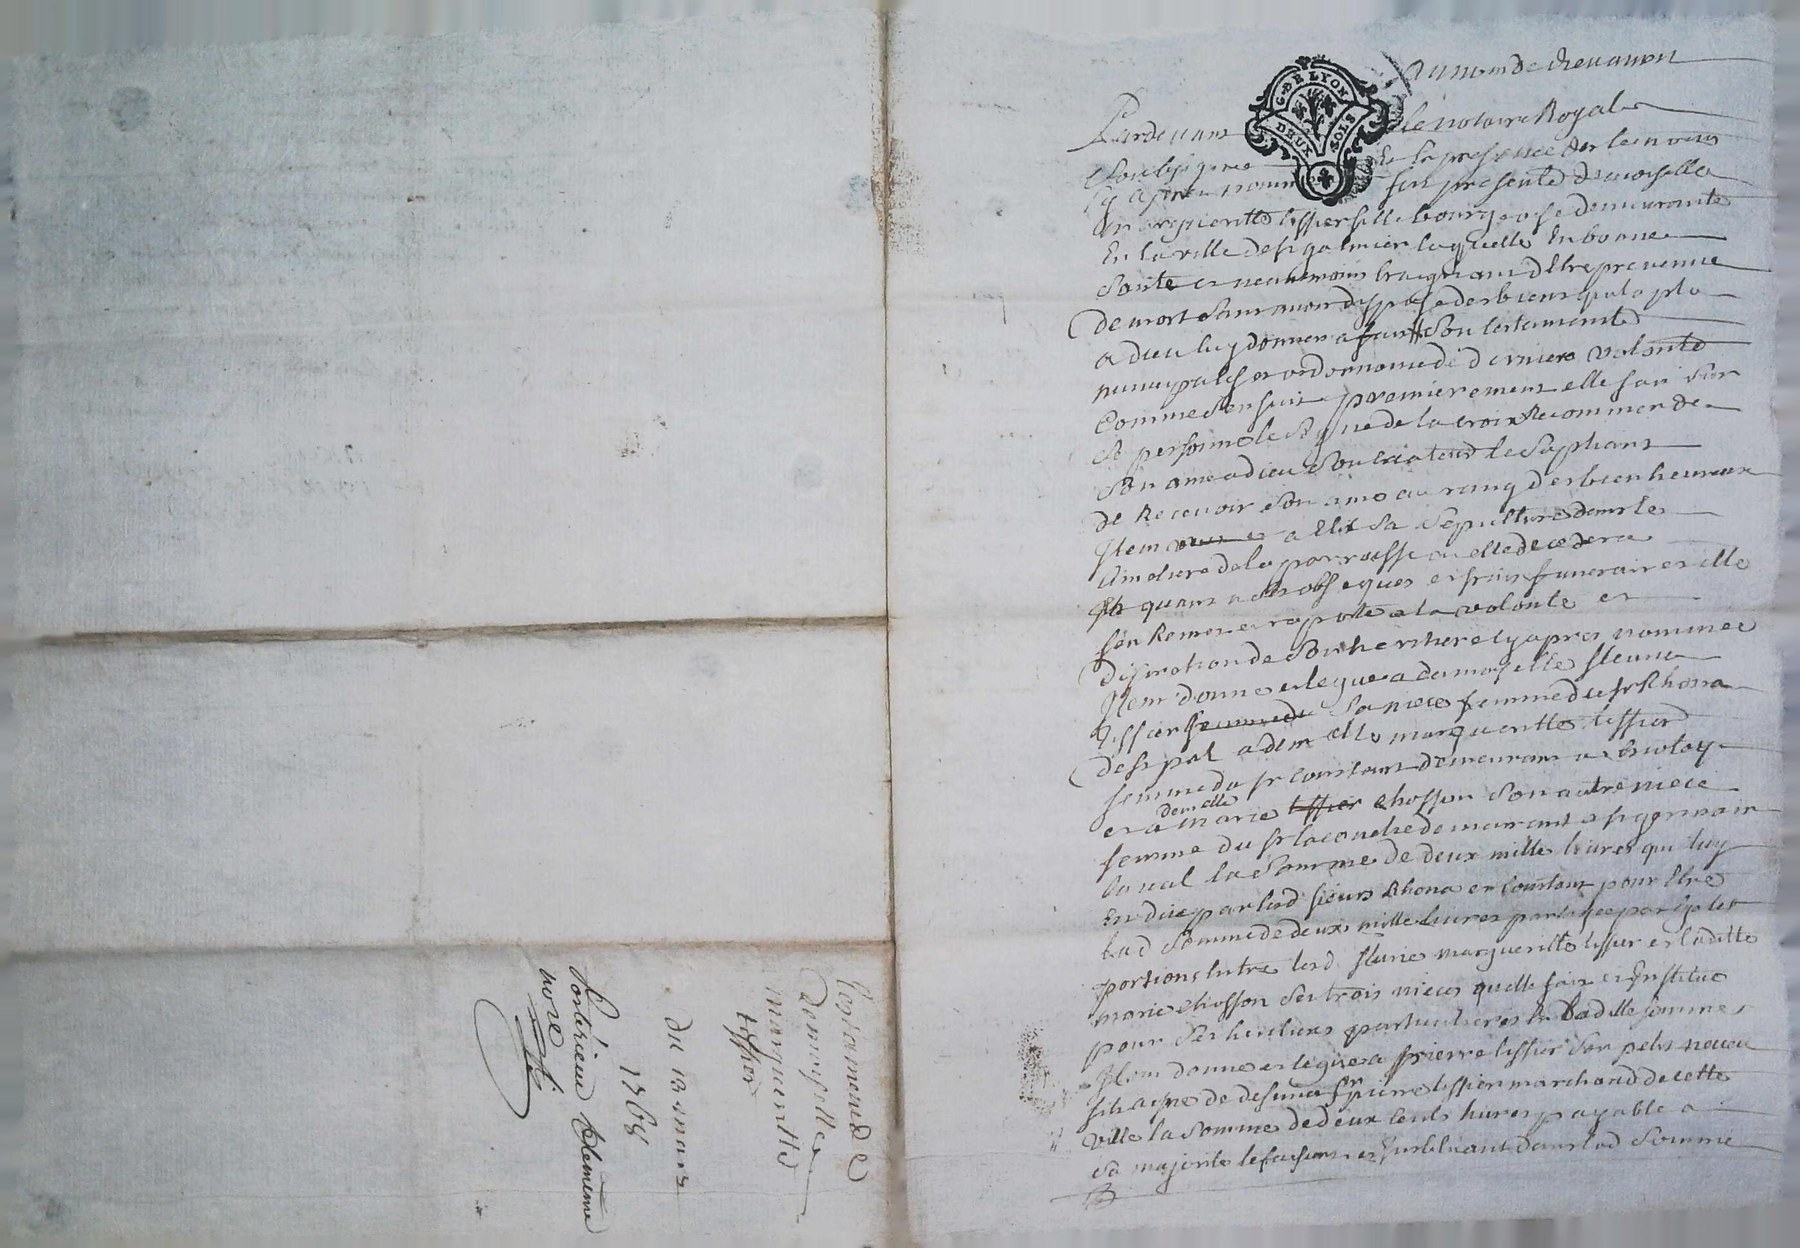 Testament de
Demoiselle
margueritte
tissier
du 13 mars
1768
Clemence
nore
G. DE LYON
DEUX SOLS
Pardevant le notaire Royal
Soubsigne En la presence des temoins
Cy apres nomm fut presente demoiselle
margueritte tissier fille bourgeoise demeurante
En la ville de st galmier laquelle En bonne
Sante et neanmoins craignant d'Etre prevenue
de mort sans avoir dispose des biens qu'il a plu
a dieu luy donner a fait son testament
nuncupatif et ordonnance de derniere volonte
Comme s'ensuit premierement elle fait sur
Sa personne le signe de la croix Recommande
Son ame a dieu Son Createur le Supliant
de Recevoir Son ame au rang des bienheureux
Item a Elit sa Sepulture dans le
Cimetiere de la parroisse ou elle decedera
Et quant a ses obseques et frais funeraires elle
s'en Remet et raporte a la volonte et
discretion de Son heritiere cy apres nommee
Item donne et legue a damoiselle fleurie
Tissier femme du sa niece femme du sr Rhona
de st pal a demelle margueritte tissier
femme du sr Constant demeurant a
et a demelle marie tissier chosson Son autre niece
femme du sr lacouche demeurant a st germain
laval la Somme de deux mille livres qui luy
Est due par lesd sieurs Rhona et Constant pour Etre
lad Somme de deux mille livres partagee par egales
portions Entre lesd fleurie margueritte tissier et laditte
marie chosson Ses trois nieces qu'elle fait et Institue
pour Ses heritieres particulieres En laditte Somme
Item donne et legue a pierre tissier Son petit neveu
fils ayne de defunt sr pierre tissier marchand de cette
ville la Somme de deux cents livres payable a
Sa majorite le faisant et Instituant dans lad Somme